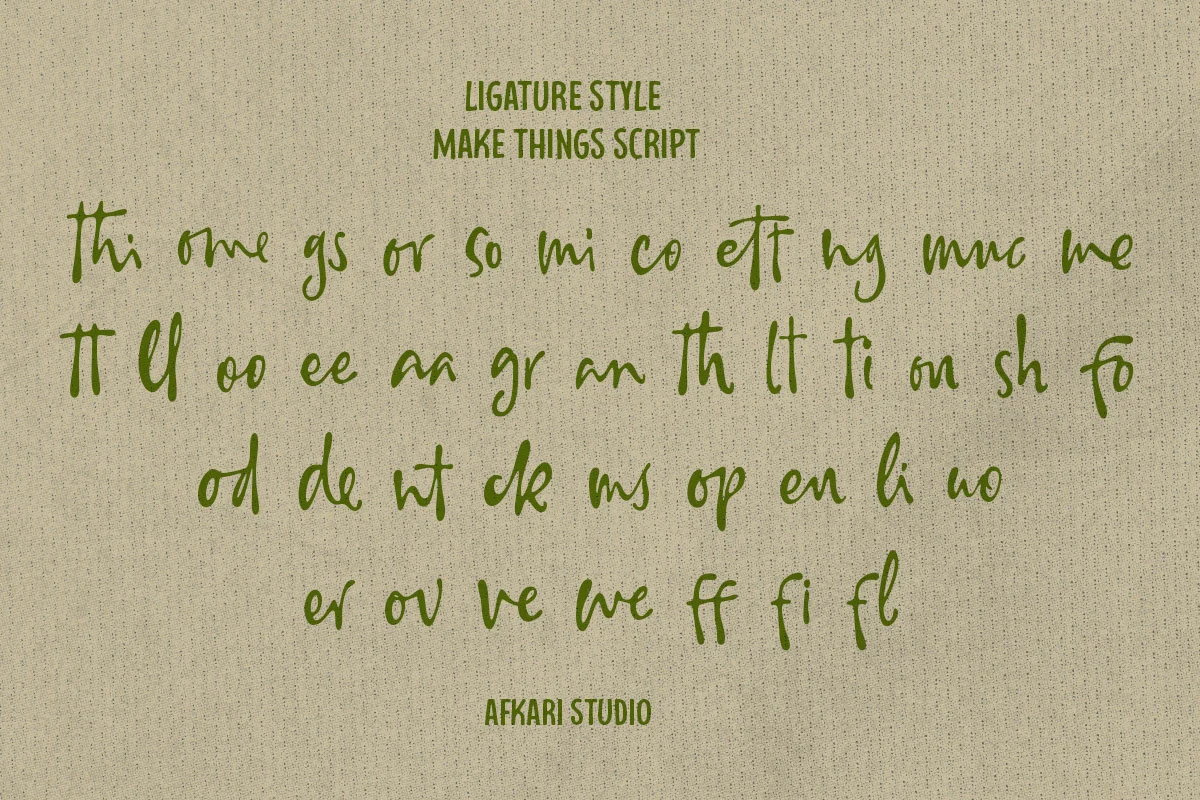 LIGATURE STYLE
MAKE THINGS SCRIPT
thi ome gs or so mi co ett ng muc me
tt ll oo ee aa gr an th lt ti on sh fo
od de nt ck ms op en li uo
er ov ve we ff fi fl
AFKARI STUDIO